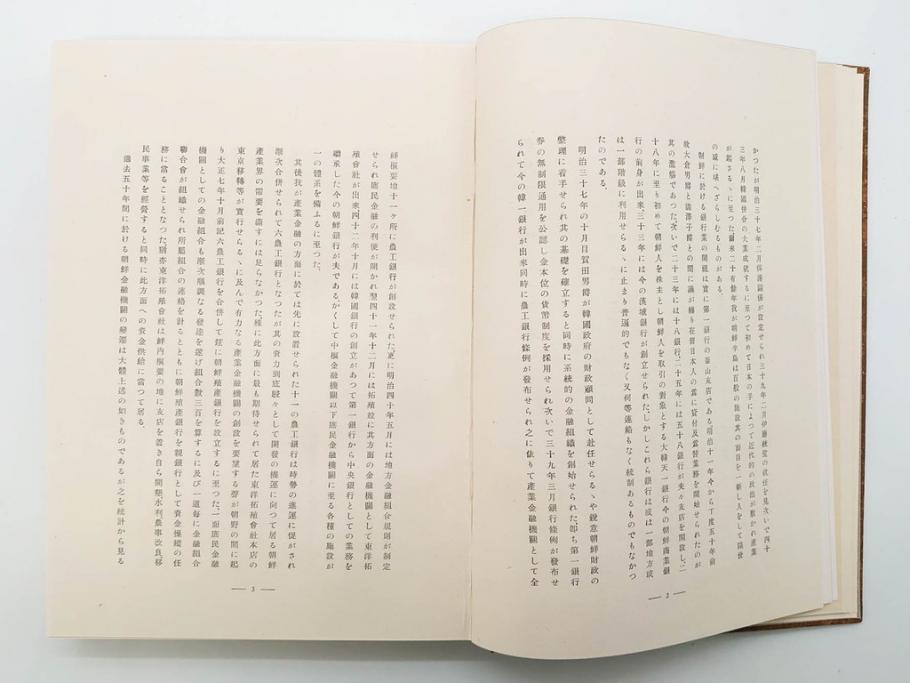 かつたが明治三十七年二月保護關係が設定せられ三十九年二月伊藤統監の就任を見次いで四十
三年八月韓國併合の大業成就するに至つて初めて日本の手によつて近代的の政治が敷かれ産業
が起さるゝに至つた爾來二十有餘年我が朝鮮半島は百般の施設其の面目を一新し人をして隔世
の感に堪へざらしむるものがある。
朝鮮に於ける銀行業の開祖は實に第一銀行の釜山支店である明治十一年今から丁度五十年前
故大倉男爵と澁澤子爵との間に議が纏り在留日本人の爲に貸付及爲替業務を開始せられたのが
其の濫觴であつた、次いで二十三年には十八銀行、二十五年には五十八銀行が夫々支店を開設し、二
十八年に至り初めて朝鮮人を株主とし朝鮮人を取引の對象とする大韓天一銀行今の朝鮮商業銀
行の前身が出來三十三年には今の漢城銀行が創立せられた、しかしこれら銀行は或は一部地方或
は一部階級に利用せらるゝに止まり普遍的でもなく又何等連絡もなく統制あるものでもなかつ
たのである。
明治三十七年の十月目賀田男爵が韓國政府の財政顧問として赴任せらるゝや鋭意朝鮮財政の
整理に着手せられ其の基礎を確立すると同時に系統的の金融組織を創始せられた、卽ち第一銀行
券の無制限通用を公認し金本位の貨幣制度を採用せられ次いで三十九年三月銀行條例が發布せ
られて今の韓一銀行が出來同時に農工銀行條例が發布せられ之に依りて產業金融機關として全
— 2 —
鮮樞要地十一ケ所に農工銀行が創設せられた、更に明治四十年五月には地方金融組合規則が制定
せられ庶民金融の利便が開かれ翌四十一年十二月には拓殖竝に其方面の金融機關として東洋拓
殖會社が出來四十二年十月には韓國銀行の創立があつて第一銀行から中央銀行としての業務を
繼承した今の朝鮮銀行が夫である、かくして中樞金融機關以下庶民金融機關に至る各種の施設が
一の體系を備ふるに至つた。
其後我が產業金融の方面に於ては先に設置せられた十一の農工銀行は時勢の進運に促がされ
漸次合併せられて六農工銀行となつたが其の資力到底駸々として開發の機運に向つて居る朝鮮
產業界の需要を満すには足らなかつた、殊に此方面に最も期待せられて居た東洋拓殖會社本店の
東京移轉等が實行せらるゝに及んで有力なる產業金融機關の創設を要望する聲が朝野の間に起
り大正七年十月前記六農工銀行を合併して玆に朝鮮殖產銀行を設立するに至つた、一面庶民金融
機關としての金融組合も漸次順調なる發達を遂げ組合數三百を算するに及び一道每に金融組合
聯合會が組織せられ所屬組合の連絡を計るとともに朝鮮殖產銀行を親銀行として資金操縱の任
務に當ることとなつた、爾來東洋拓殖會社は鮮内樞要の地に支店を置き自ら開墾水利、農事改良、移
民事業等を經營すると同時に此方面への資金供給に當つて居る。
過去五十年間に於ける朝鮮金融機關の變遷は大體上述の如きものであるが之を統計から見る
— 3 —